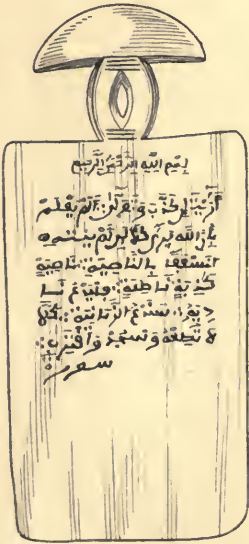 بسم الله الرحمن الرحيم
أريت إن كذب وتولى ألم يعلم
بأن الله يرى كلا لين لم ينته
لنسفعا بالناصية ∴ ناصية
كذبة خاطئة ∴ فليدع نا
ديه ∴ سندع الزبانية ∴ كلا
لا تطعه وسجد واقترب ∴